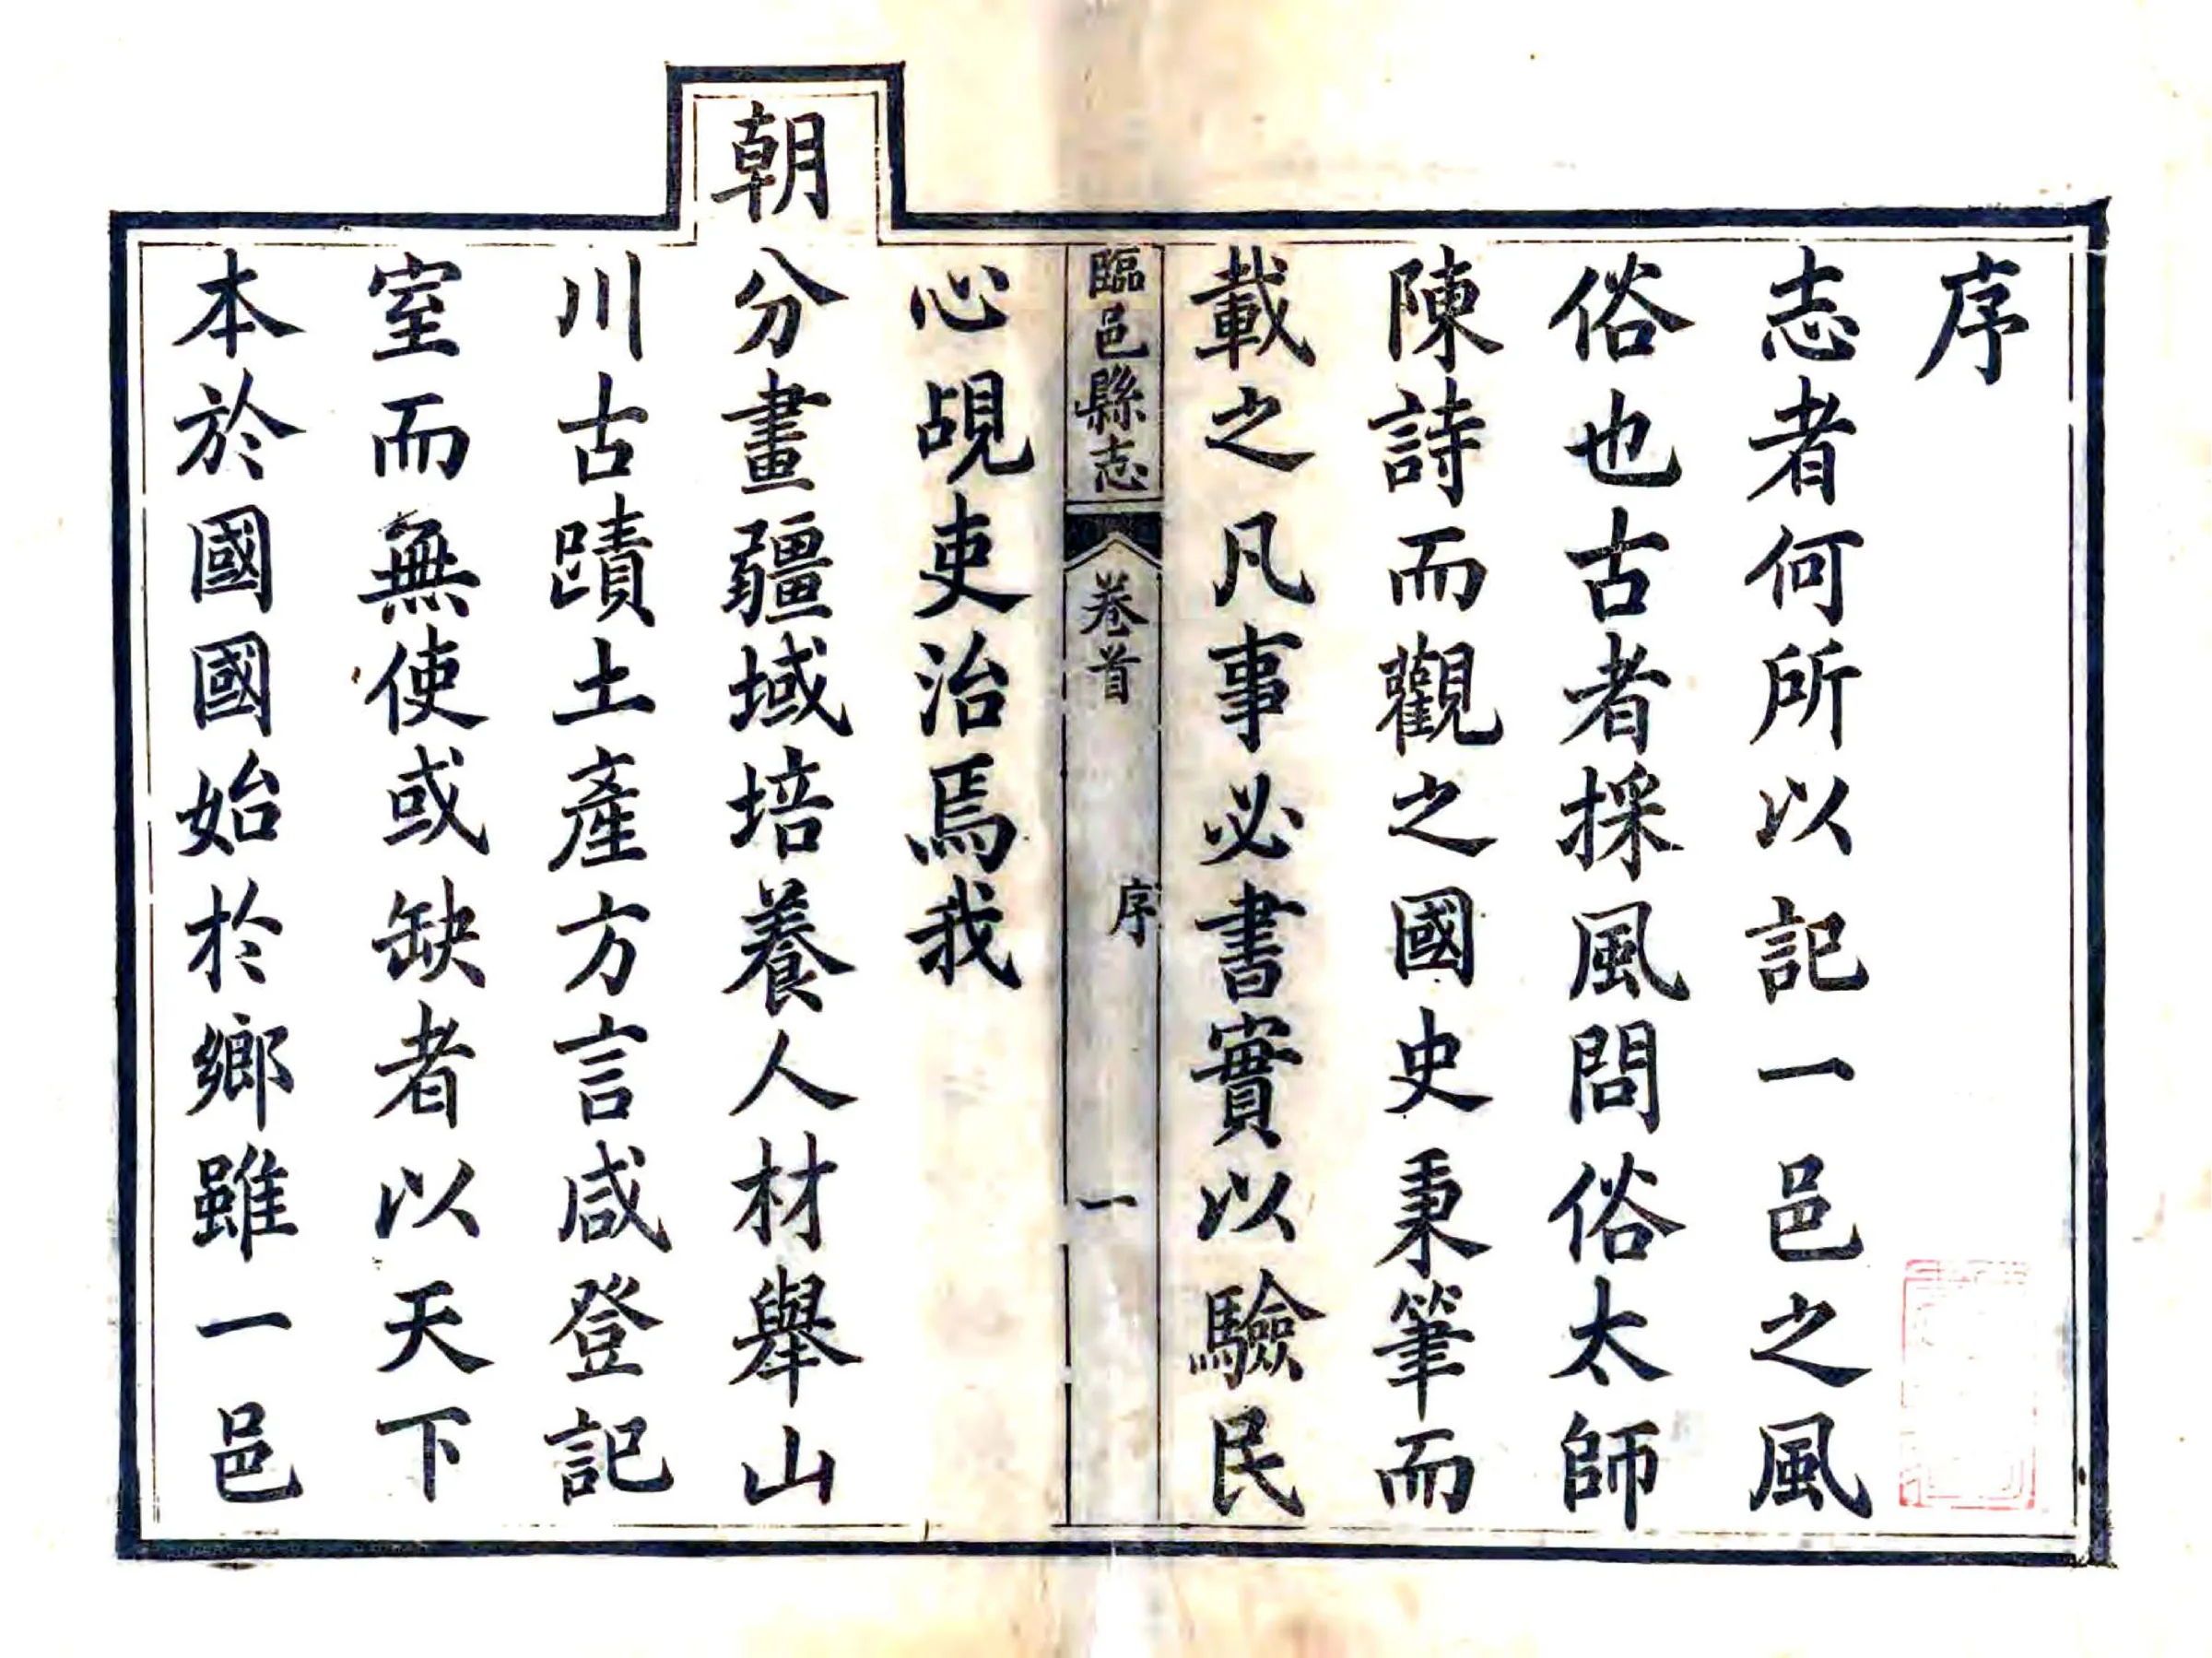 序
志者何所以記一邑之風
俗也古者採風問俗太師
陳詩而觀之國史秉筆而
載之凡事必書實以驗民
臨邑縣志
卷首
序
一
心覘吏治焉我
朝分畫疆域培養人材舉山
川古蹟土產方言咸登記
室而無使或缺者以天下
本於國國始於鄉雖一邑